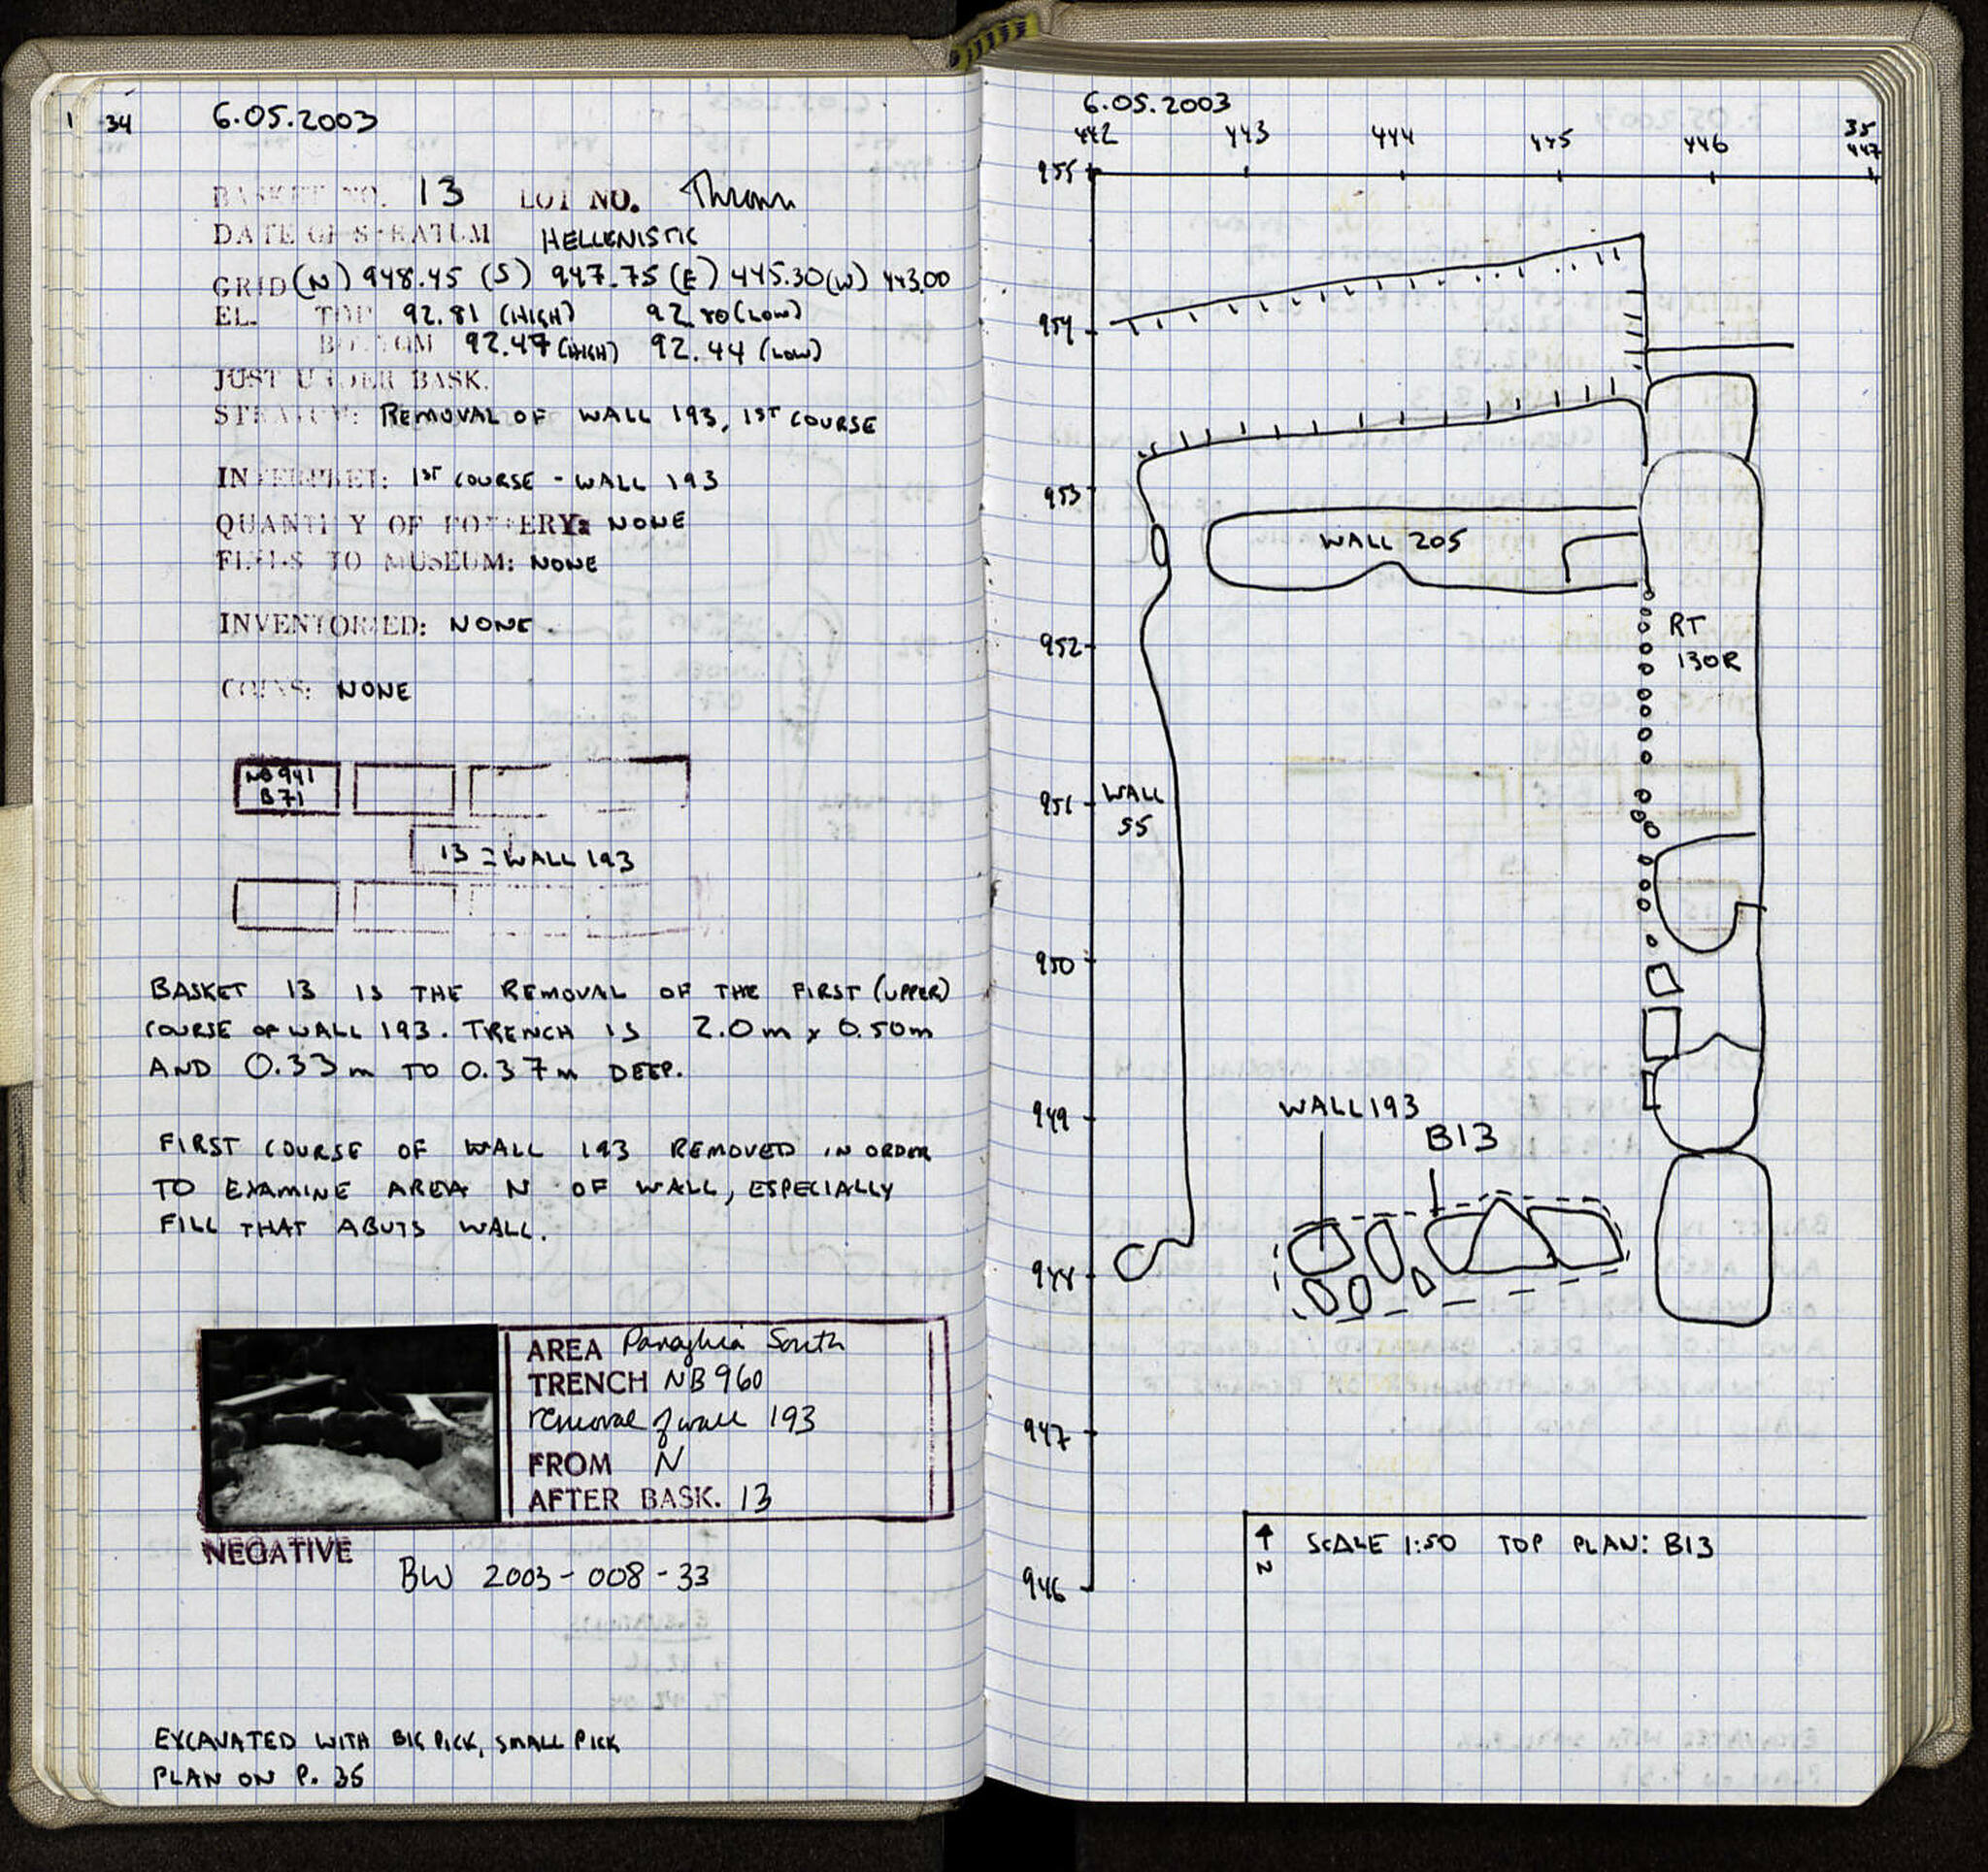 34
6.05.2003
BASKET NO. 13 LOT NO. Thrown
DATE OF STRATUM HELLENISTIC
GRID (N) 948.45 (S) 947.75 (E) 445.30 (W) 443.00
EL. TOP 92.81 (HIGH) 92.80 (LOW)
BOTTOM 92.47 (HIGH) 92.44 (LOW)
JUST UNDER BASK.
STRATUM: REMOVAL OF WALL 193, 1ST COURSE
INTERPRET: 1ST COURSE - WALL 193
QUANTITY OF POTTERY: NONE
FINDS TO MUSEUM: NONE
INVENTORIED: NONE.
COINS: NONE
NB 941
B71
13 = WALL 193
BASKET 13 IS THE REMOVAL OF THE FIRST (UPPER)
COURSE OF WALL 193. TRENCH IS 2.0m x 0.50m
AND 0.33m TO 0.37m DEEP.
FIRST COURSE OF WALL 193 REMOVED IN ORDER
TO EXAMINE AREA N OF WALL, ESPECIALLY
FILL THAT ABUTS WALL.
AREA Panaghia South
TRENCH NB 960
removal of wall 193
FROM N
AFTER BASK. 13
NEGATIVE
BW 2003-008-33
EXCAVATED WITH BIG PICK, SMALL PICK
PLAN ON P. 35
6.05.2003
35
442 443 444 445 446 447
955
954
953
WALL 205
952
RT
130R
951
WALL
55
950
949
WALL 193
B13
948
947
946
N
SCALE 1:50 TOP PLAN: B13